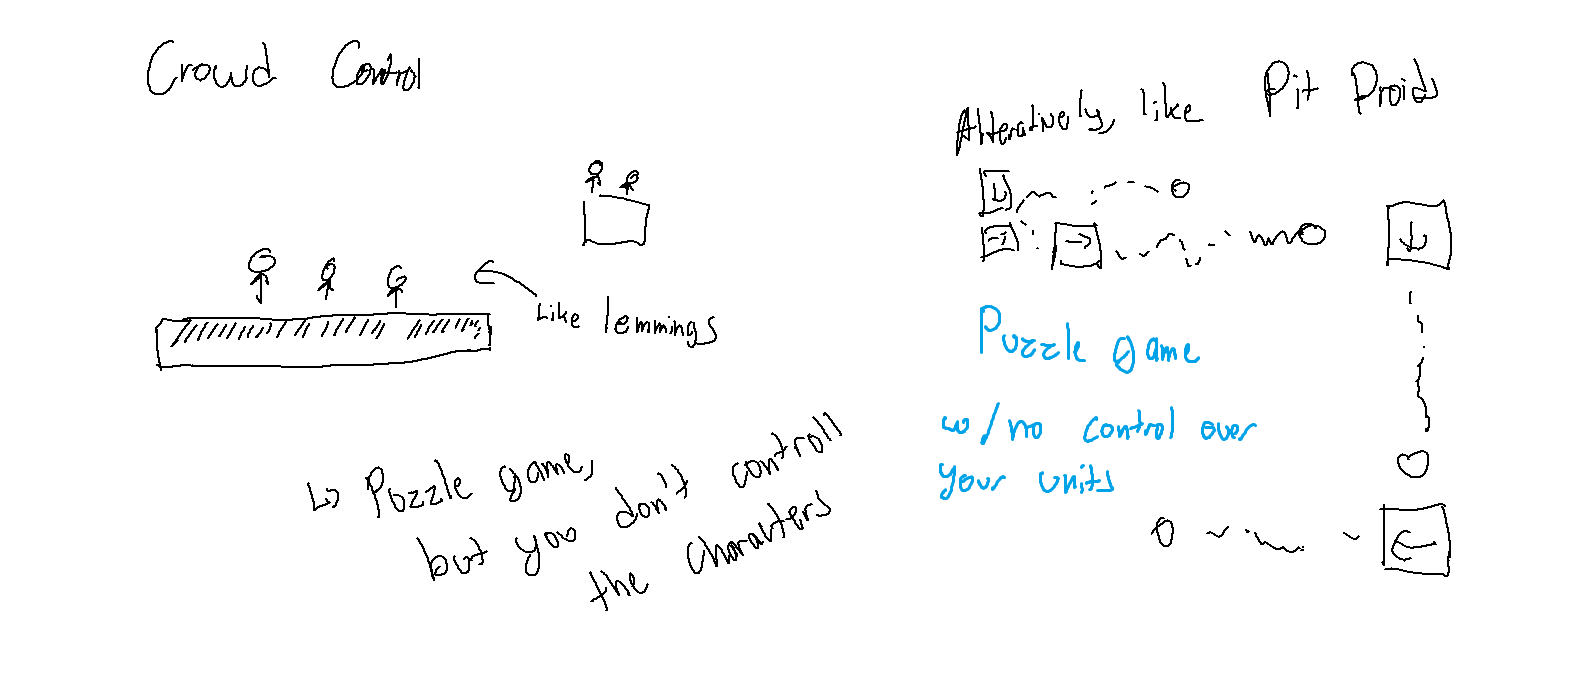 Crowd Control
Like lemmings
↳ Puzzle game,
but you don't controll
the characters
Alteratively, like Pit Proids
Puzzle game
w/no control over
your units